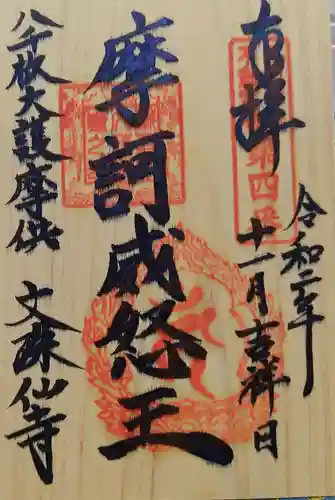 奉拝
第四番
令和二年
十一月吉祥日
摩訶威怒王
八千枚大護摩供 文殊仙寺